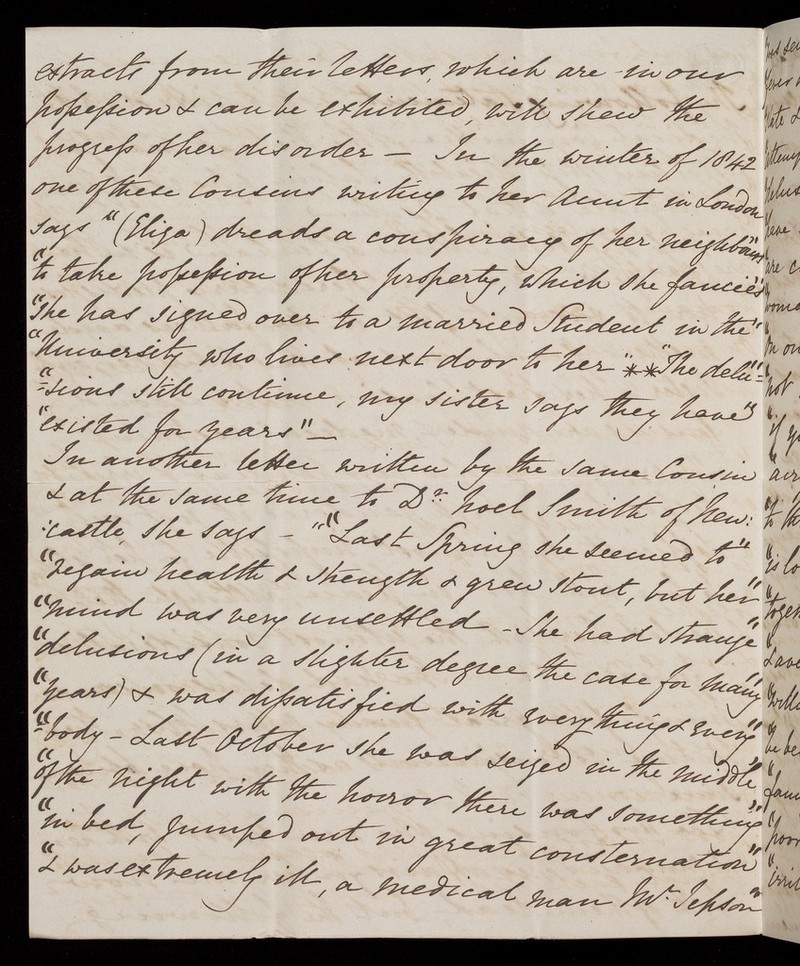 extracts from their letters, which are in our
possession & can be exhibited, will shew the
progress of her disorder — In the winter of 1842
one of these Cousins writing to her Aunt in London
says "(Eliza) dreads a conspiracy of her neighbours"
"to take possession of her property, which she fancies"
"She has signed over to a married Student in the"
"University who lives next door to her" ** "The delu"=
"=sions still continue, my sister says they have"
"existed for years" —
In another letter written by the same Cousin
& at the same time to Dr. Noel Smith of New:
:castle, she says - "Last Spring she seemed to"
"regain health & strength & grew stout, but her"
"mind was very unsettled - She had strange"
"delusions (in a slighter degree the case for many"
"years) & was dissatisfied with every thing & every"
"=body - Last October she was seized in the middle"
"of the night with the horror there was something"
"in bed, jumped out in great consternation"
"& was extremely ill, a medical man Mr. Jepson"